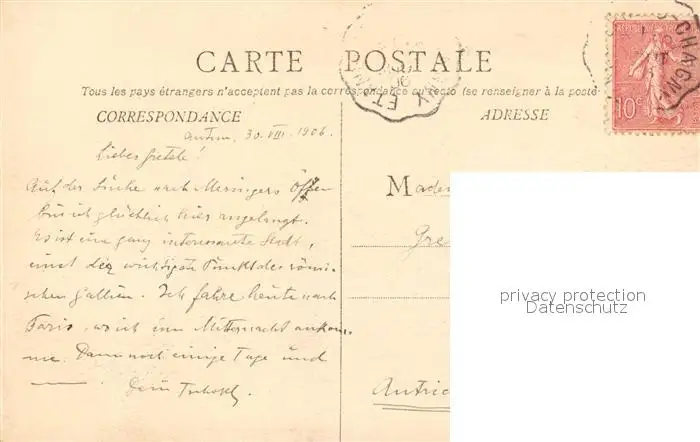 CARTE POSTALE
Tous les pays étrangers n'acceptent pas la correspondance au recto (se renseigner à la poste
CORRESPONDANCE
ADRESSE
REPUBLIQUE
10c
CHAGN
ET
Autun, 30. VIII. 1906.
Liebes Gretele!
Auf der Suche nach Messingers
bin ich glücklich hier angelangt.
Es ist eine ganz interessante Stadt,
einst der wichtigste Punkt des römi-
schen Gallien. Ich fahre heute nach
Paris, wo ich um Mitternacht ankom-
me. Dann noch einige Tage und
Dein
Madem
Gre
Autric
privacy protection
Datenschutz